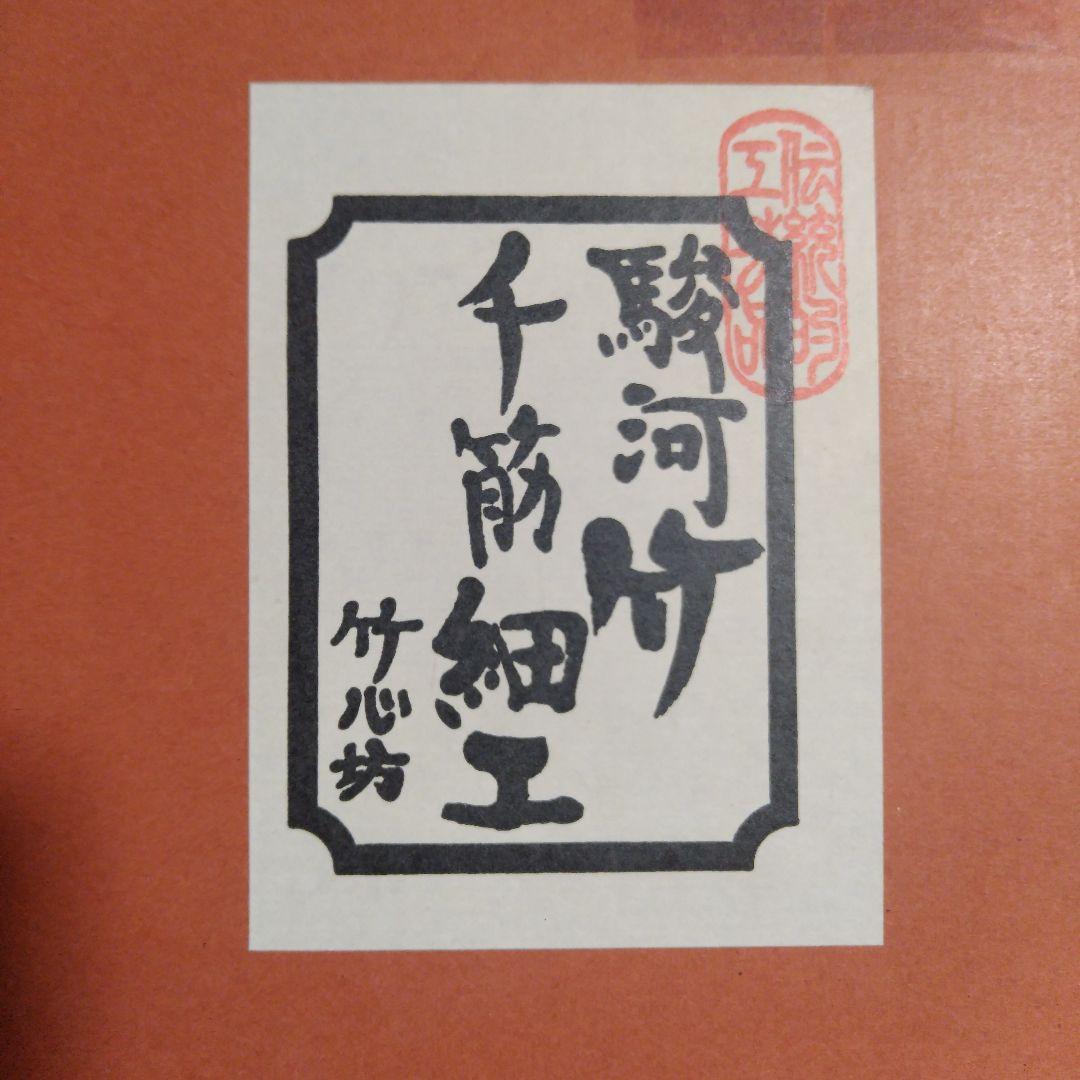 伝統的
工芸品
駿河竹
千筋細工
竹心坊